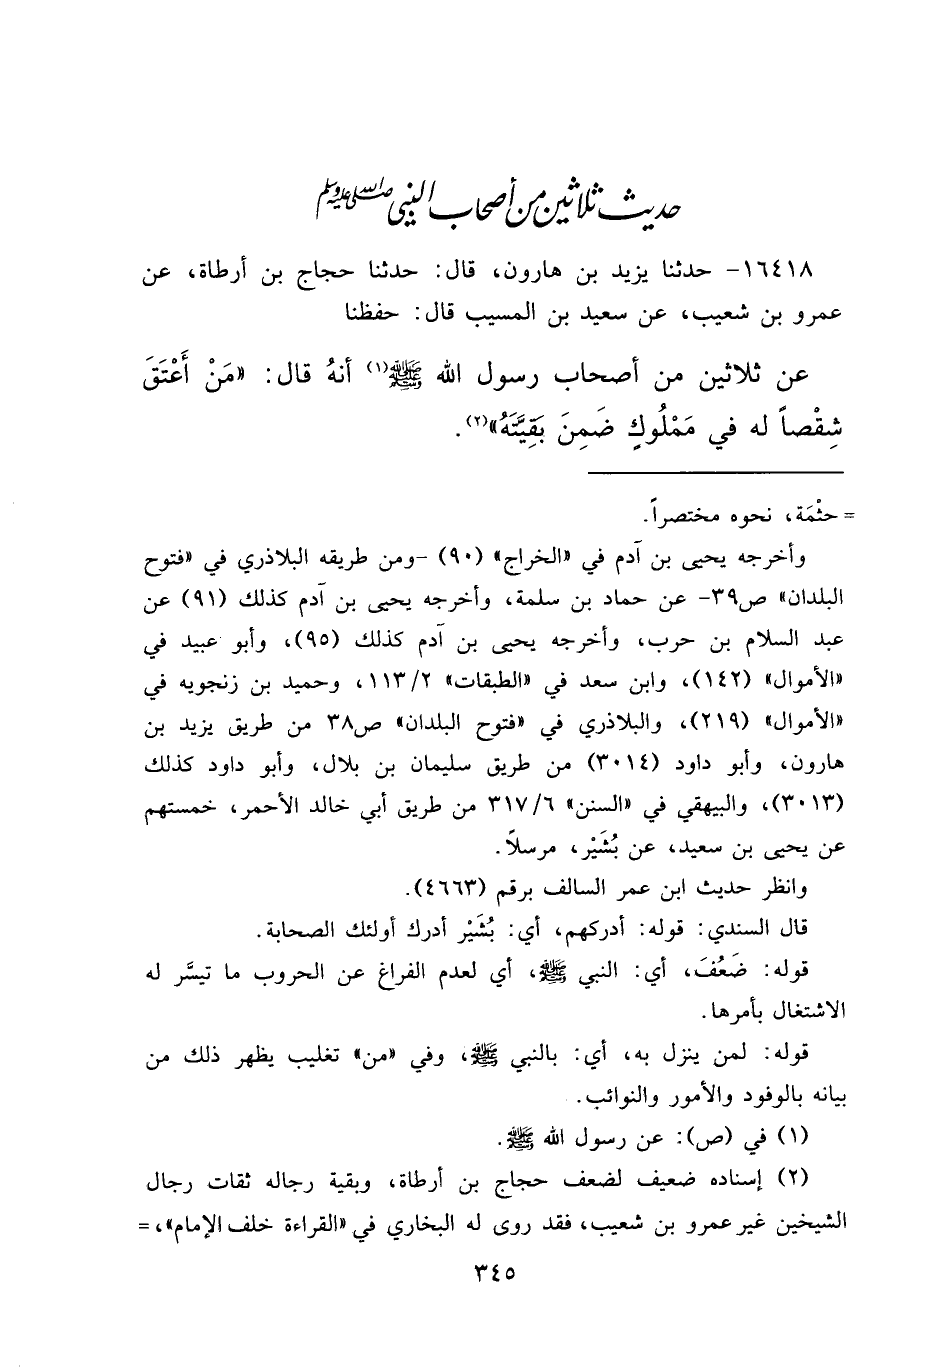 حديث ثلاثين من أصحاب النبي صلى الله عليه وسلم
١٦٤١٨- حدثنا يزيد بن هارون، قال: حدثنا حجاج بن أرطاة، عن
عمرو بن شعيب، عن سعيد بن المسيب قال: حفظنا
عن ثلاثين من أصحاب رسول الله ﷺ(١) أنهُ قال: «مَنْ أَعْتَقَ
شِقْصاً له في مَمْلُوكٍ ضَمِنَ بَقِيَّتَهُ»(٢).
= حثْمَة، نحوه مختصراً.
وأخرجه يحيى بن آدم في «الخراج» (٩٠) -ومن طريقه البلاذري في «فتوح
البلدان» ص٣٩- عن حماد بن سلمة، وأخرجه يحيى بن آدم كذلك (٩١) عن
عبد السلام بن حرب، وأخرجه يحيى بن آدم كذلك (٩٥)، وأبو عبيد في
«الأموال» (١٤٢)، وابن سعد في «الطبقات» ١١٣/٢، وحميد بن زنجويه في
«الأموال» (٢١٩)، والبلاذري في «فتوح البلدان» ص٣٨ من طريق يزيد بن
هارون، وأبو داود (٣٠١٤) من طريق سليمان بن بلال، وأبو داود كذلك
(٣٠١٣)، والبيهقي في «السنن» ٣١٧/٦ من طريق أبي خالد الأحمر، خمستهم
عن يحيى بن سعيد، عن بُشَيْر، مرسلاً.
وانظر حديث ابن عمر السالف برقم (٤٦٦٣).
قال السندي: قوله: أدركهم، أي: بُشَيْر أدرك أولئك الصحابة.
قوله: ضَعُفَ، أي: النبي ﷺ، أي لعدم الفراغ عن الحروب ما تيسَّر له
الاشتغال بأمرها.
قوله: لمن ينزل به، أي: بالنبي ﷺ، وفي «من» تغليب يظهر ذلك من
بيانه بالوفود والأمور والنوائب.
(١) في (ص): عن رسول الله ﷺ.
(٢) إسناده ضعيف لضعف حجاج بن أرطاة، وبقية رجاله ثقات رجال
الشيخين غير عمرو بن شعيب، فقد روى له البخاري في «القراءة خلف الإمام»، =
٣٤٥